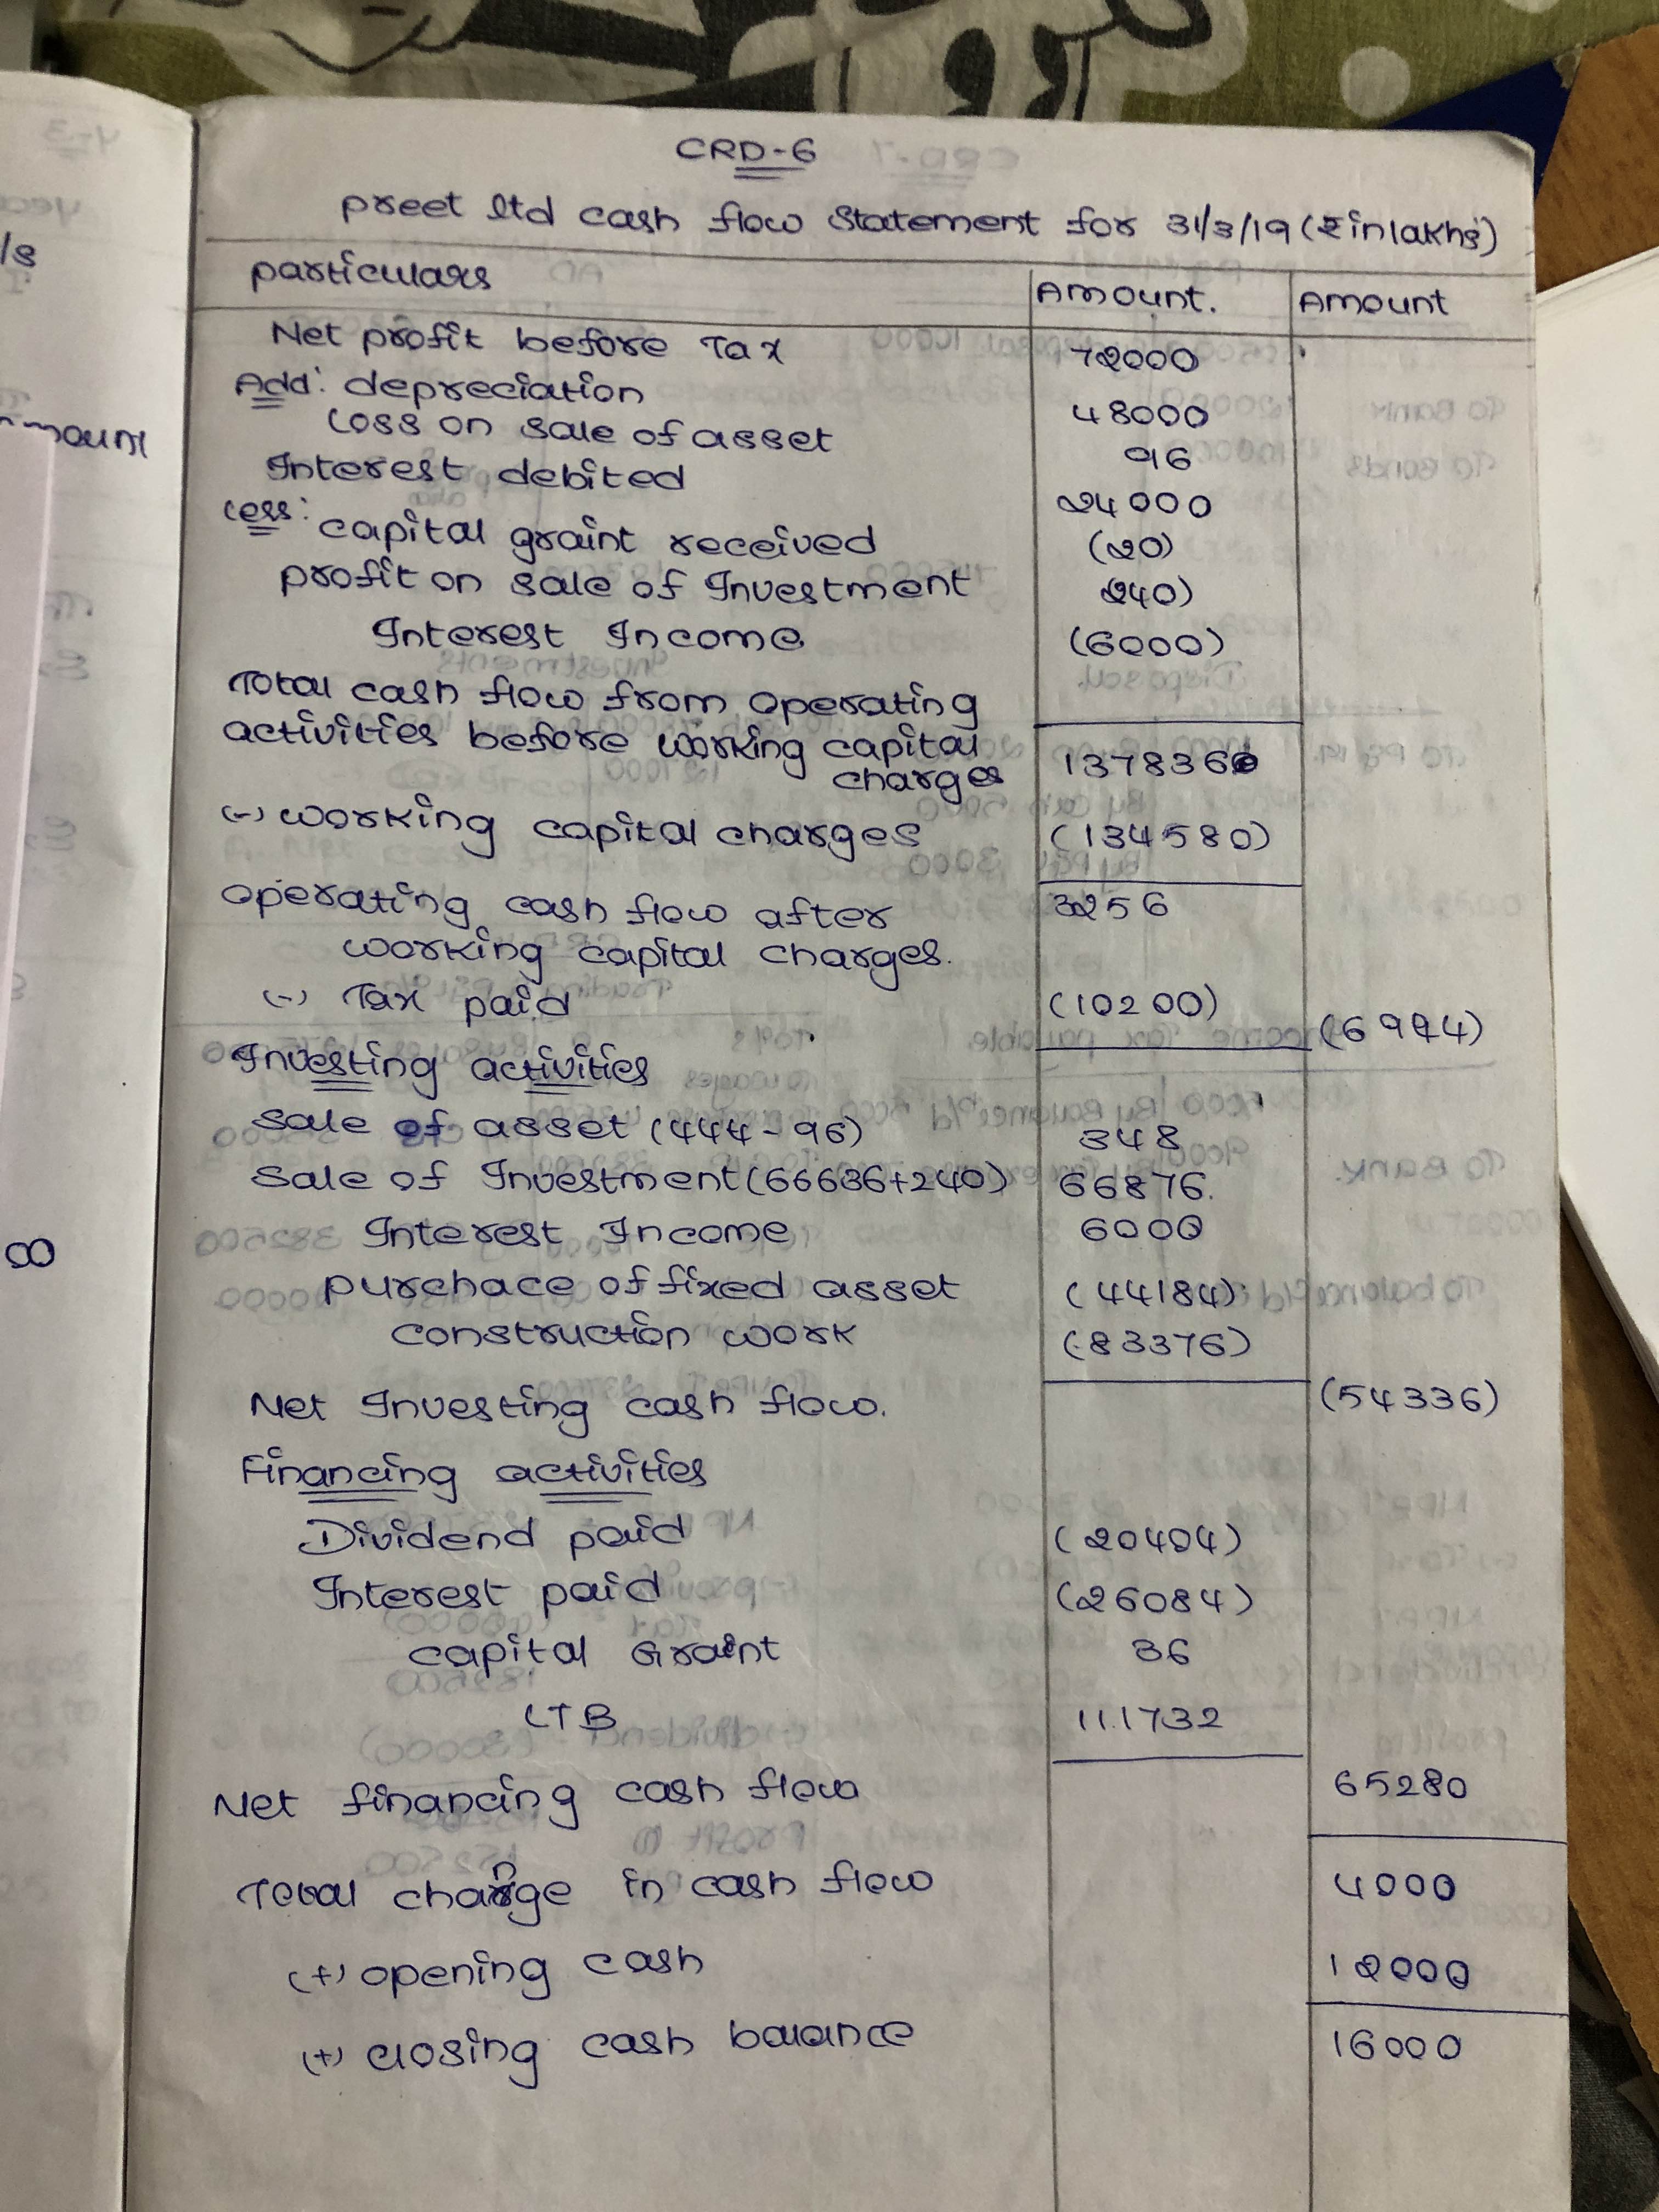 CRD-6
preet ltd cash flow statement for 31/3/19 (₹ in lakhs)
particulars Amount. Amount
Net profit before Tax 72000
Add: depreciation 48000
Loss on sale of asset 96
Interest debited 24000
Less: capital graint received (20)
profit on sale of Investment (240)
Interest Income (6000)
Total cash flow from operating
activities before working capital
charges 137836
(-) working capital charges (134580)
operating cash flow after 3256
working capital charges.
(-) Tax paid (10200) (6944)
Investing activities
Sale of asset (444-96) 348
Sale of Investment (66636+240) 66876.
Interest Income 6000
purchace of fixed asset (44184)
construction work (83376)
Net Investing cash flow. (54336)
Financing activities
Dividend paid (20404)
Interest paid (26084)
capital Graint 36
LTB 111732
Net financing cash flow 65280
Total change in cash flow 4000
(+) opening cash 12000
(+) closing cash balance 16000